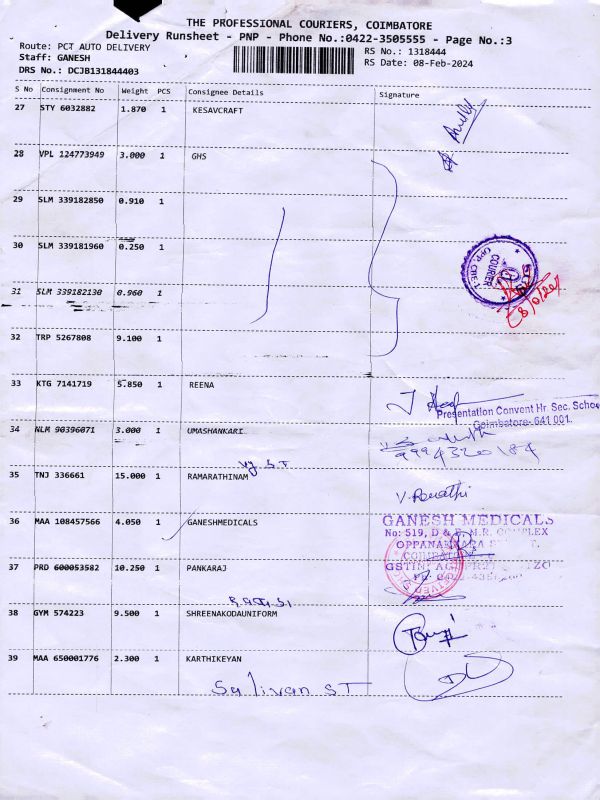 THE PROFESSIONAL COURIERS, COIMBATORE
Delivery Runsheet - PNP - Phone No.:0422-3505555 - Page No.:3
Route: PCT AUTO DELIVERY RS No.: 1318444
Staff: GANESH RS Date: 08-Feb-2024
DRS No.: DCJB131844403
S No Consignment No Weight PCS Consignee Details Signature
27 STY 6032882 1.870 1 KESAVCRAFT
28 VPL 124773949 3.000 1 GHS
29 SLM 339182850 0.910 1
30 SLM 339181960 0.250 1
COURIER
31 SLM 339182130 0.960 1
32 TRP 5267808 9.100 1
33 KTG 7141719 5.850 1 REENA
Presentation Convent Hr. Sec. Schoo
Coimbatore- 641 001.
34 NLM 90396071 3.000 1 UMASHANKARI
9994320184
35 TNJ 336661 15.000 1 RAMARATHINAM
36 MAA 108457566 4.050 1 GANESHMEDICALS
GANESH MEDICALS
No: 519, D & B.M.R. COMPLEX
37 PRD 600053582 10.250 1 PANKARAJ
38 GYM 574223 9.500 1 SHREENAKODAUNIFORM
39 MAA 650001776 2.300 1 KARTHIKEYAN
Sullivan ST